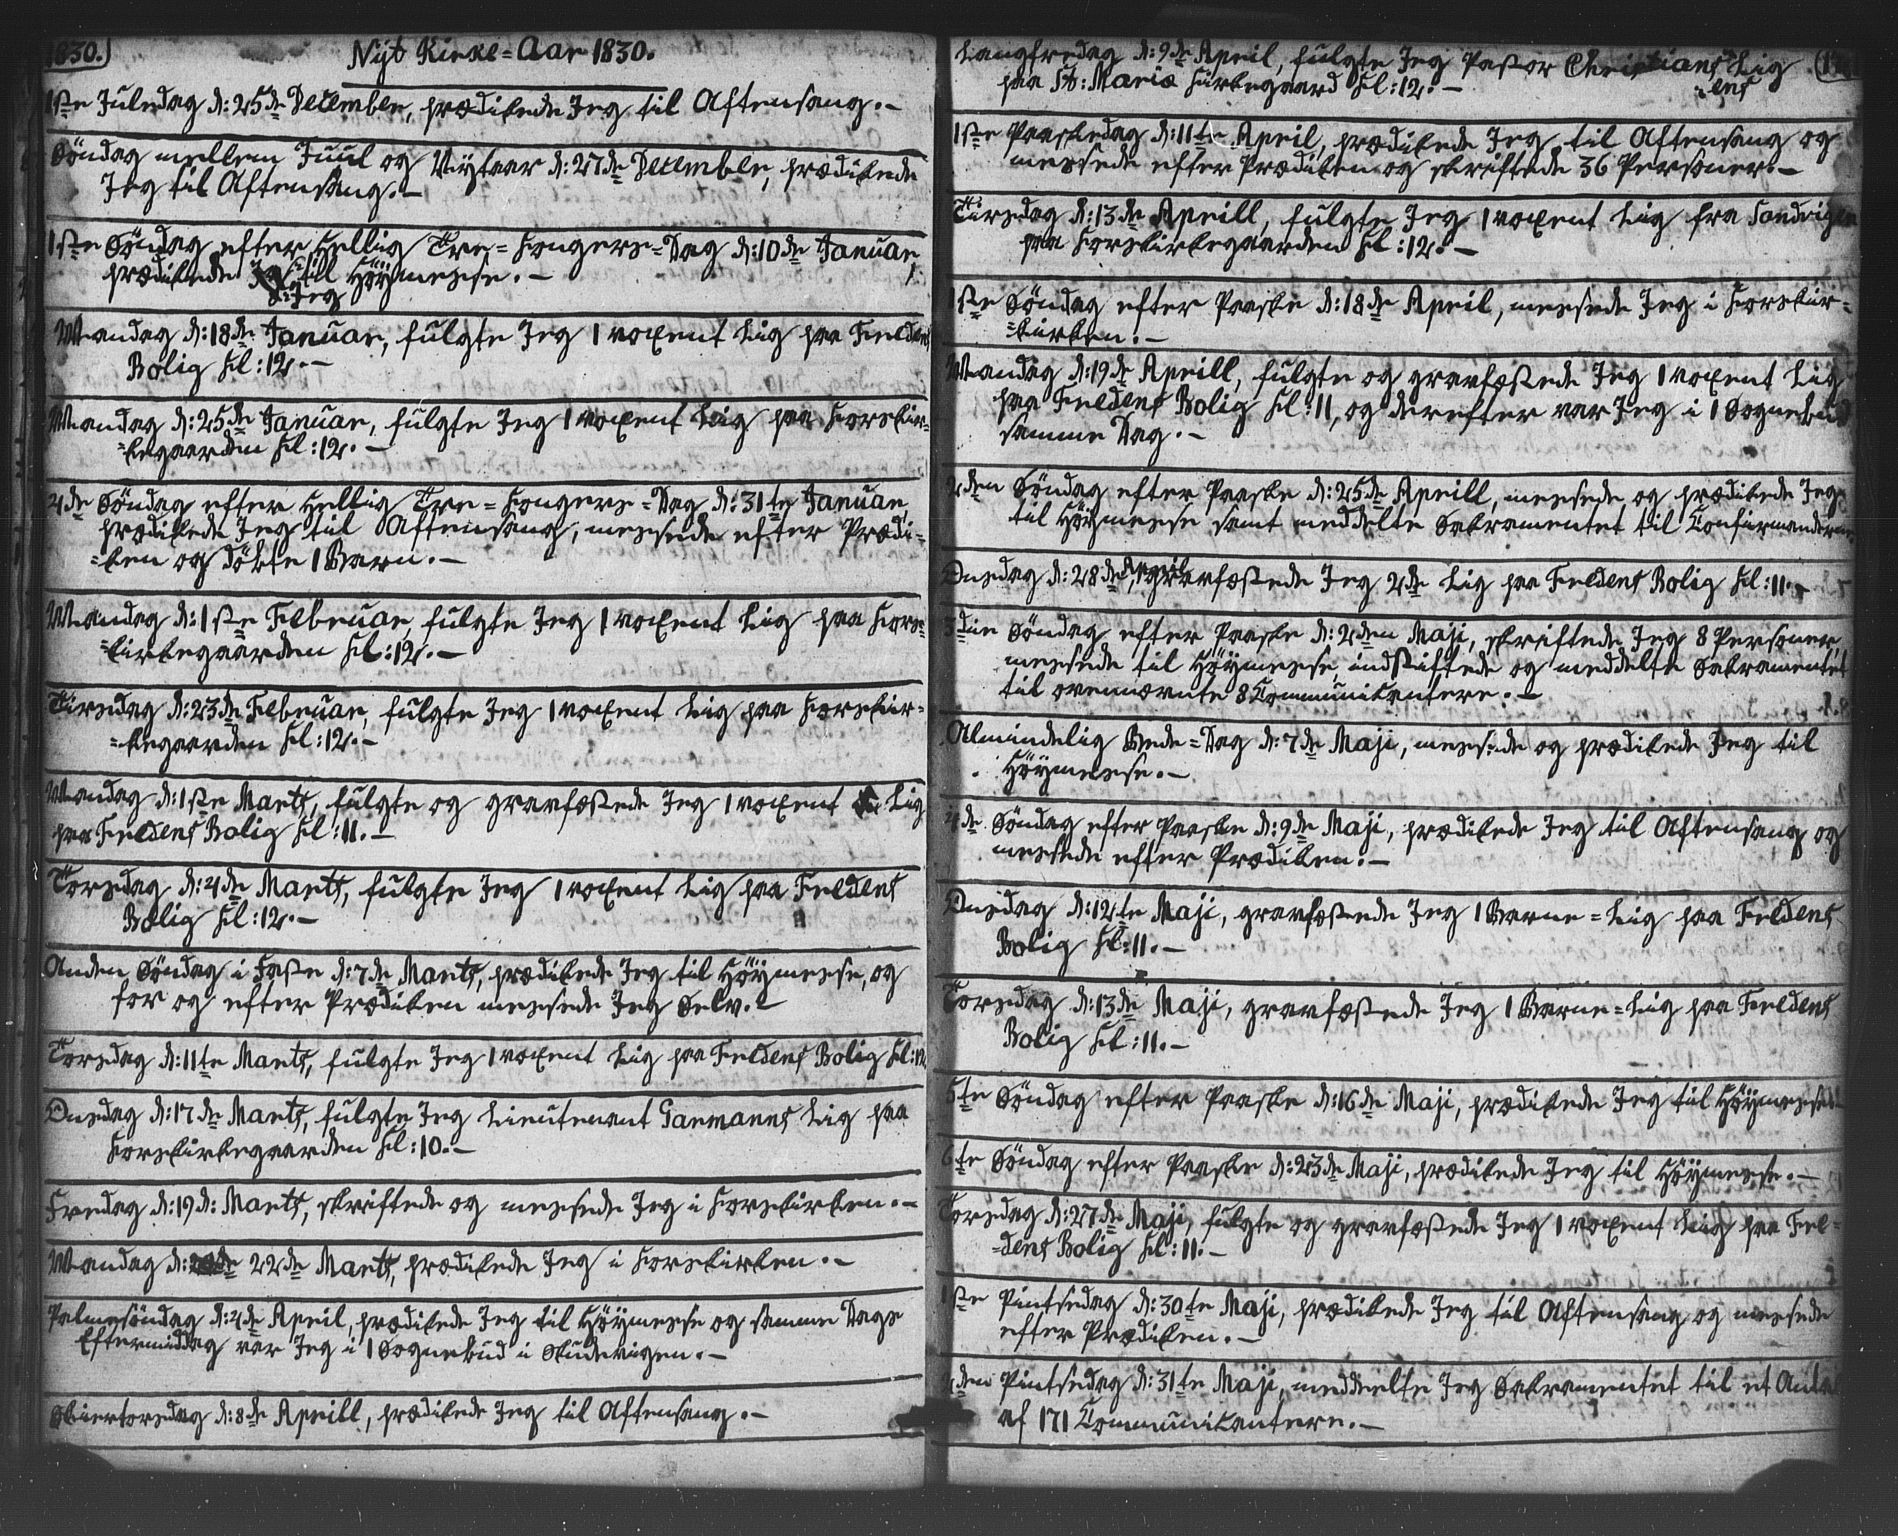 1830.)
Nyt Kirke=Aar 1830.
1ste Juledag d: 25de December, prædikede Jeg til Aftensang. -
Söndag mellem Juul og Nÿtaar d: 27de December, prædikede
Jeg til Aftensang. -
1ste Söndag efter Hellig Tre=Konger=Dag d: 10de Januar,
prædikede til Höÿmesse. -
d: Jeg
Mandag d: 18de Januar, fulgte Jeg 1 voxent Lig paa Fredens
Bolig Kl: 12. -
Mandag d: 25de Januar, fulgte Jeg 1 voxent Lig paa Korskir=
=kegaarden Kl: 12. -
4de Söndag efter Hellig Tre=Kongers=Dag d: 31te Januar
prædikede Jeg til Aftensang, messede efter Prædi=
=ken og döbte 1 Barn. -
Mandag d: 1ste Februar, fulgte Jeg 1 voxent Lig paa Kors=
=kirkegaarden Kl: 12. -
Tirsdag d: 23de Februar, fulgte Jeg 1 voxent Lig paa Korskir=
=kegaarden Kl: 12. -
Mandag d: 1ste Marts, fulgte og gravfæstede Jeg 1 voxent Lig
paa Fredens Bolig Kl: 11. -
Torsdag d: 4de Marts, fulgte Jeg 1 voxent Lig paa Fredens
Bolig Kl: 12. -
Anden Söndag i Faste d: 7de Marts, prædikede Jeg til Höÿmesse, og
for og efter Prædiken messede Jeg Selv. -
Torsdag d: 11te Marts, fulgte Jeg 1 voxent Lig paa Fredens Bolig Kl: 12
Onsdag d: 17de Marts, fulgte Jeg Lieutenant Garmanns Lig paa
Korskirkegaarden Kl: 10. -
Fredag d: 19d: Marts, skriftede og messede Jeg i Korskirken. -
Mandag d: 22de Marts, prædikede Jeg i Korskirken. -
Palmesöndag d: 4de April, prædikede Jeg til Höÿmesse og samme Dags
Eftermiddag var Jeg i 1 Sognebud i Skudevigen. -
Skiertorsdag d: 8de Aprill, prædikede Jeg til Aftensang. -
Langfredag d: 9de April, fulgte Jeg Pastor Christians Lig
paa St: Mariæ Kirkegaard Kl: 12. - =ens
1ste Paaskedag d: 11te April, prædikede Jeg til Aftensang og
messede efter Prædiken og skriftede 36 Personer. -
Tirsdag d: 13de Aprill, fulgte Jeg 1 voxent Lig fra Sandvigen
paa Korskirkegaarden Kl: 12. -
1ste Söndag efter Paaske d: 18de April, messede Jeg i Korskir=
=kirken. -
Mandag d: 19de Aprill, fulgte og gravfæstede Jeg 1 voxent Lig
paa Fredens Bolig Kl: 11, og derefter var Jeg i 1 Sognebud
samme Dag. -
2den Söndag efter Paaske d: 25de Aprill, messede og prædikede Jeg
til Höÿmesse samt meddelte Sakramentet til Confirmanderne.
Onsdag d: 28de April, gravfæstede Jeg 2de Lig paa Fredens Bolig Kl: 11. -
3die Söndag efter Paaske d: 2den Maji, skriftede Jeg 8 Personer,
messede til Höÿmesse, indstiftede og meddelte Sakramentet
til ovennævnte 8 Communikantere. -
Almindelig Bede=Dag d: 7de Maji, messede og prædikede Jeg til
Höÿmesse. -
4de Söndag efter Paaske d: 9de Maji, prædikede Jeg til Aftensang og
messede efter Prædiken. -
Onsdag d: 12te Maji, gravfæstede Jeg 1 Barne=Lig paa Fredens
Bolig Kl: 11. -
Torsdag d: 13de Maji, gravfæstede Jeg 1 Barne=Lig paa Fredens
Bolig Kl: 11. -
5te Söndag efter Paaske d: 16de Maji, prædikede Jeg til Höÿmesse
6te Söndag efter Paaske d: 23de Maji, prædikede Jeg til Höÿmesse. -
Torsdag d: 27de Maji, fulgte og gravfæstede Jeg 1 voxent Lig paa Fre=
=dens Bolig Kl: 11. -
1ste Pintsedag d: 30te Maji, prædikede Jeg til Aftensang og messede
efter Prædiken. -
2den Pintsedag d: 31te Maji, meddeelte Jeg Sakramentet til et Antal
af 171 Communikantere. -